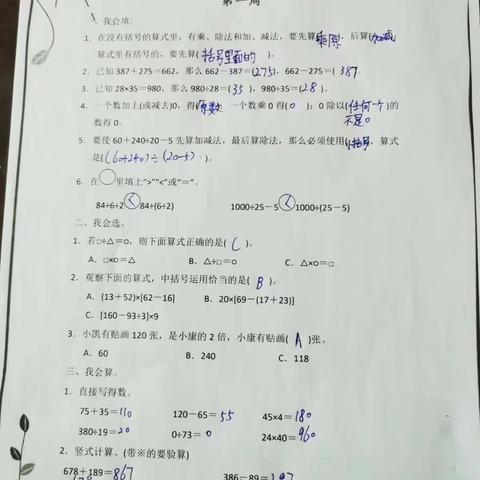 第一周
一、我会填。
1．在没有括号的算式里，有乘、除法和加、减法，要先算(乘除)，后算(加减)；
算式里有括号的，要先算( 括号里面的 )。
2．已知387＋275＝662，那么662－387＝(275)，662－275＝( 387
3．已知28×35＝980，那么980÷28＝(35)，980÷35＝(28)。
4．一个数加上(或减去)0，得(原数) 一个数乘0得(0)；0除以(任何一个)的
不是0
数得0。
5．要使60＋240÷20－5先算加减法，最后算除法，那么必须使用(小括号，算式
是((60+240)÷(20-5))。
6．在○里填上“>”“<”或“＝”。
84÷6÷2 < 84÷(6÷2) 1000÷25－5 < 1000÷(25－5)
二、我会选。
1．若□÷△＝○，则下面算式正确的是( C )。
A．□×○＝△ B．△÷□＝○ C．△×○＝□
2．观察下面的算式，中括号运用恰当的是( B )。
A．(13＋52)×[62－16] B．20×[69－(17＋23)]
C．[160－93÷3]×9
3．小凯有贴画120张，是小康的2倍，小康有贴画( A )张。
A．60 B．240 C．118
三、我会算。
1．直接写得数。
75＋35＝110 120－65＝55 45×4＝180
380÷19＝20 0÷73＝0 24×40＝960
2．竖式计算。(带※的要验算)
678＋189＝867 386－89＝297